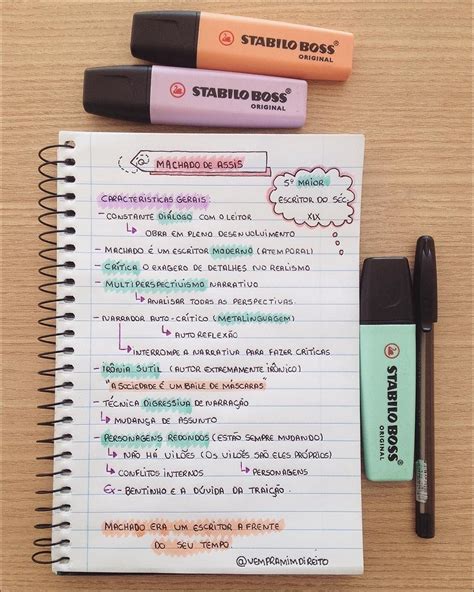 STABILO BOSS
ORIGINAL
STABILO BOSS
ORIGINAL
MACHADO DE ASSIS
5º MAIOR
ESCRITOR DO SÉC.
XIX
CARACTERÍSTICAS GERAIS:
- CONSTANTE DIÁLOGO COM O LEITOR
OBRA EM PLENO DESENVOLVIMENTO
- MACHADO É UM ESCRITOR MODERNO (ATEMPORAL)
- CRÍTICA O EXAGERO DE DETALHES NO REALISMO
- MULTIPERSPECTIVISMO NARRATIVO
ANALISAR TODAS AS PERSPECTIVAS.
- NARRADOR AUTO-CRÍTICO (METALINGUAGEM)
AUTOREFLEXÃO
INTERROMPE A NARRATIVA PARA FAZER CRÍTICAS
- IRÔNIA SUTIL (AUTOR EXTREMAMENTE IRÔNICO)
"A SOCIEDADE É UM BAILE DE MÁSCARAS"
- TÉCNICA DIGRESSIVA DE NARRAÇÃO
MUDANÇA DE ASSUNTO.
- PERSONAGENS REDONDOS (ESTÃO SEMPRE MUDANDO)
NÃO HÁ VILÕES (OS VILÕES SÃO ELES PRÓPRIOS)
CONFLITOS INTERNOS PERSONAGENS
EX- BENTINHO E A DÚVIDA DA TRAIÇÃO.
MACHADO ERA UM ESCRITOR A FRENTE
DO SEU TEMPO.
@VEMPRAMIMDIREITO
STABILO BOSS
ORIGINAL